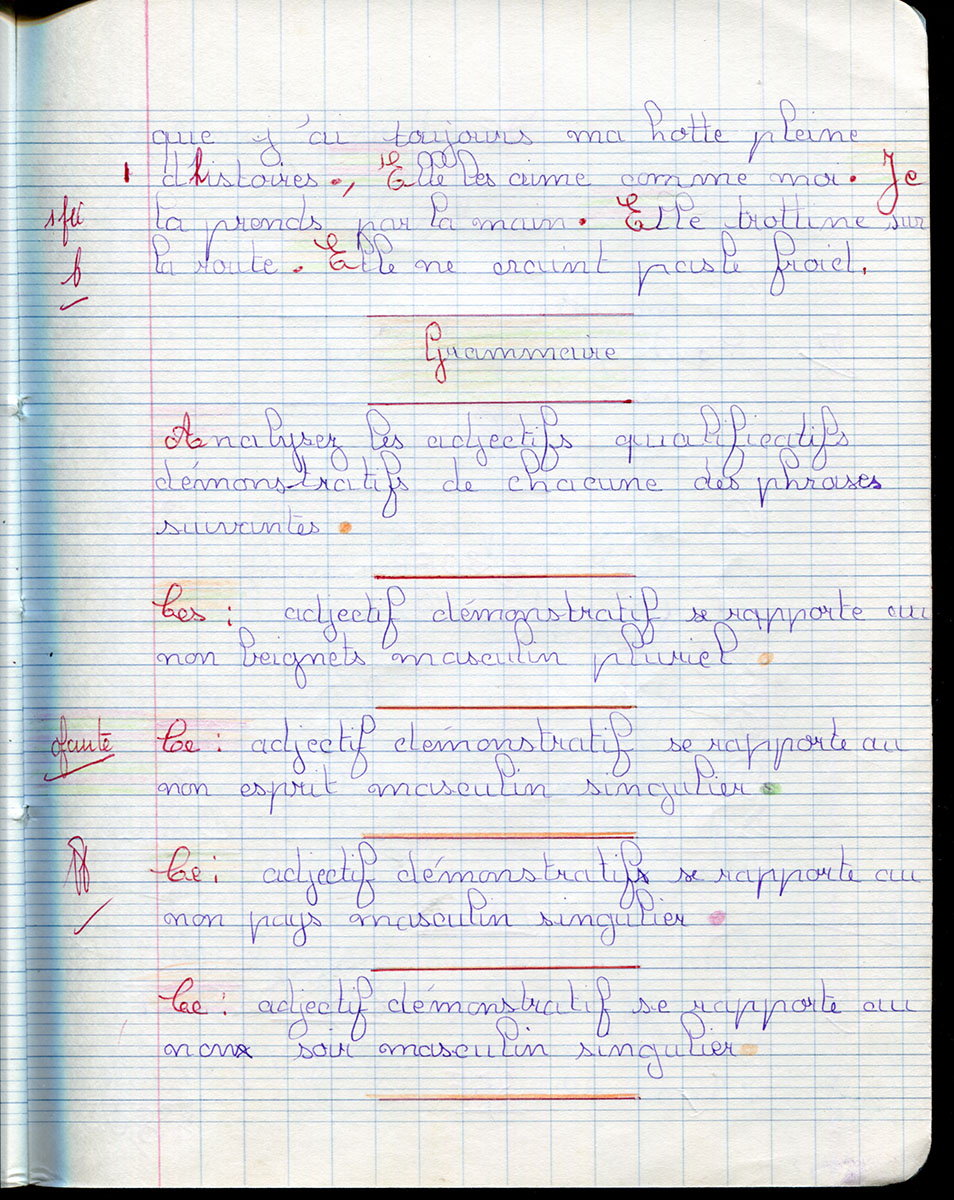 que j'ai toujours ma hotte pleine
1 d'histoires., Elle les aime comme moi. Je
la prends par la main. Elle trottine sur
la route. Elle ne craint pas le froid.
Grammaire
Analysez les adjectifs qualificatifs
démonstratifs de chacune des phrases
suivantes.
Ces : adjectif démonstratif se rapporte au
non beignets masculin pluriel.
0 faute Ce : adjectif démonstratif se rapporte au
non esprit masculin singulier.
Ce : adjectif démonstratif se rapporte au
non pays masculin singulier.
Ce : adjectif démonstratif se rapporte au
non soir masculin singulier.